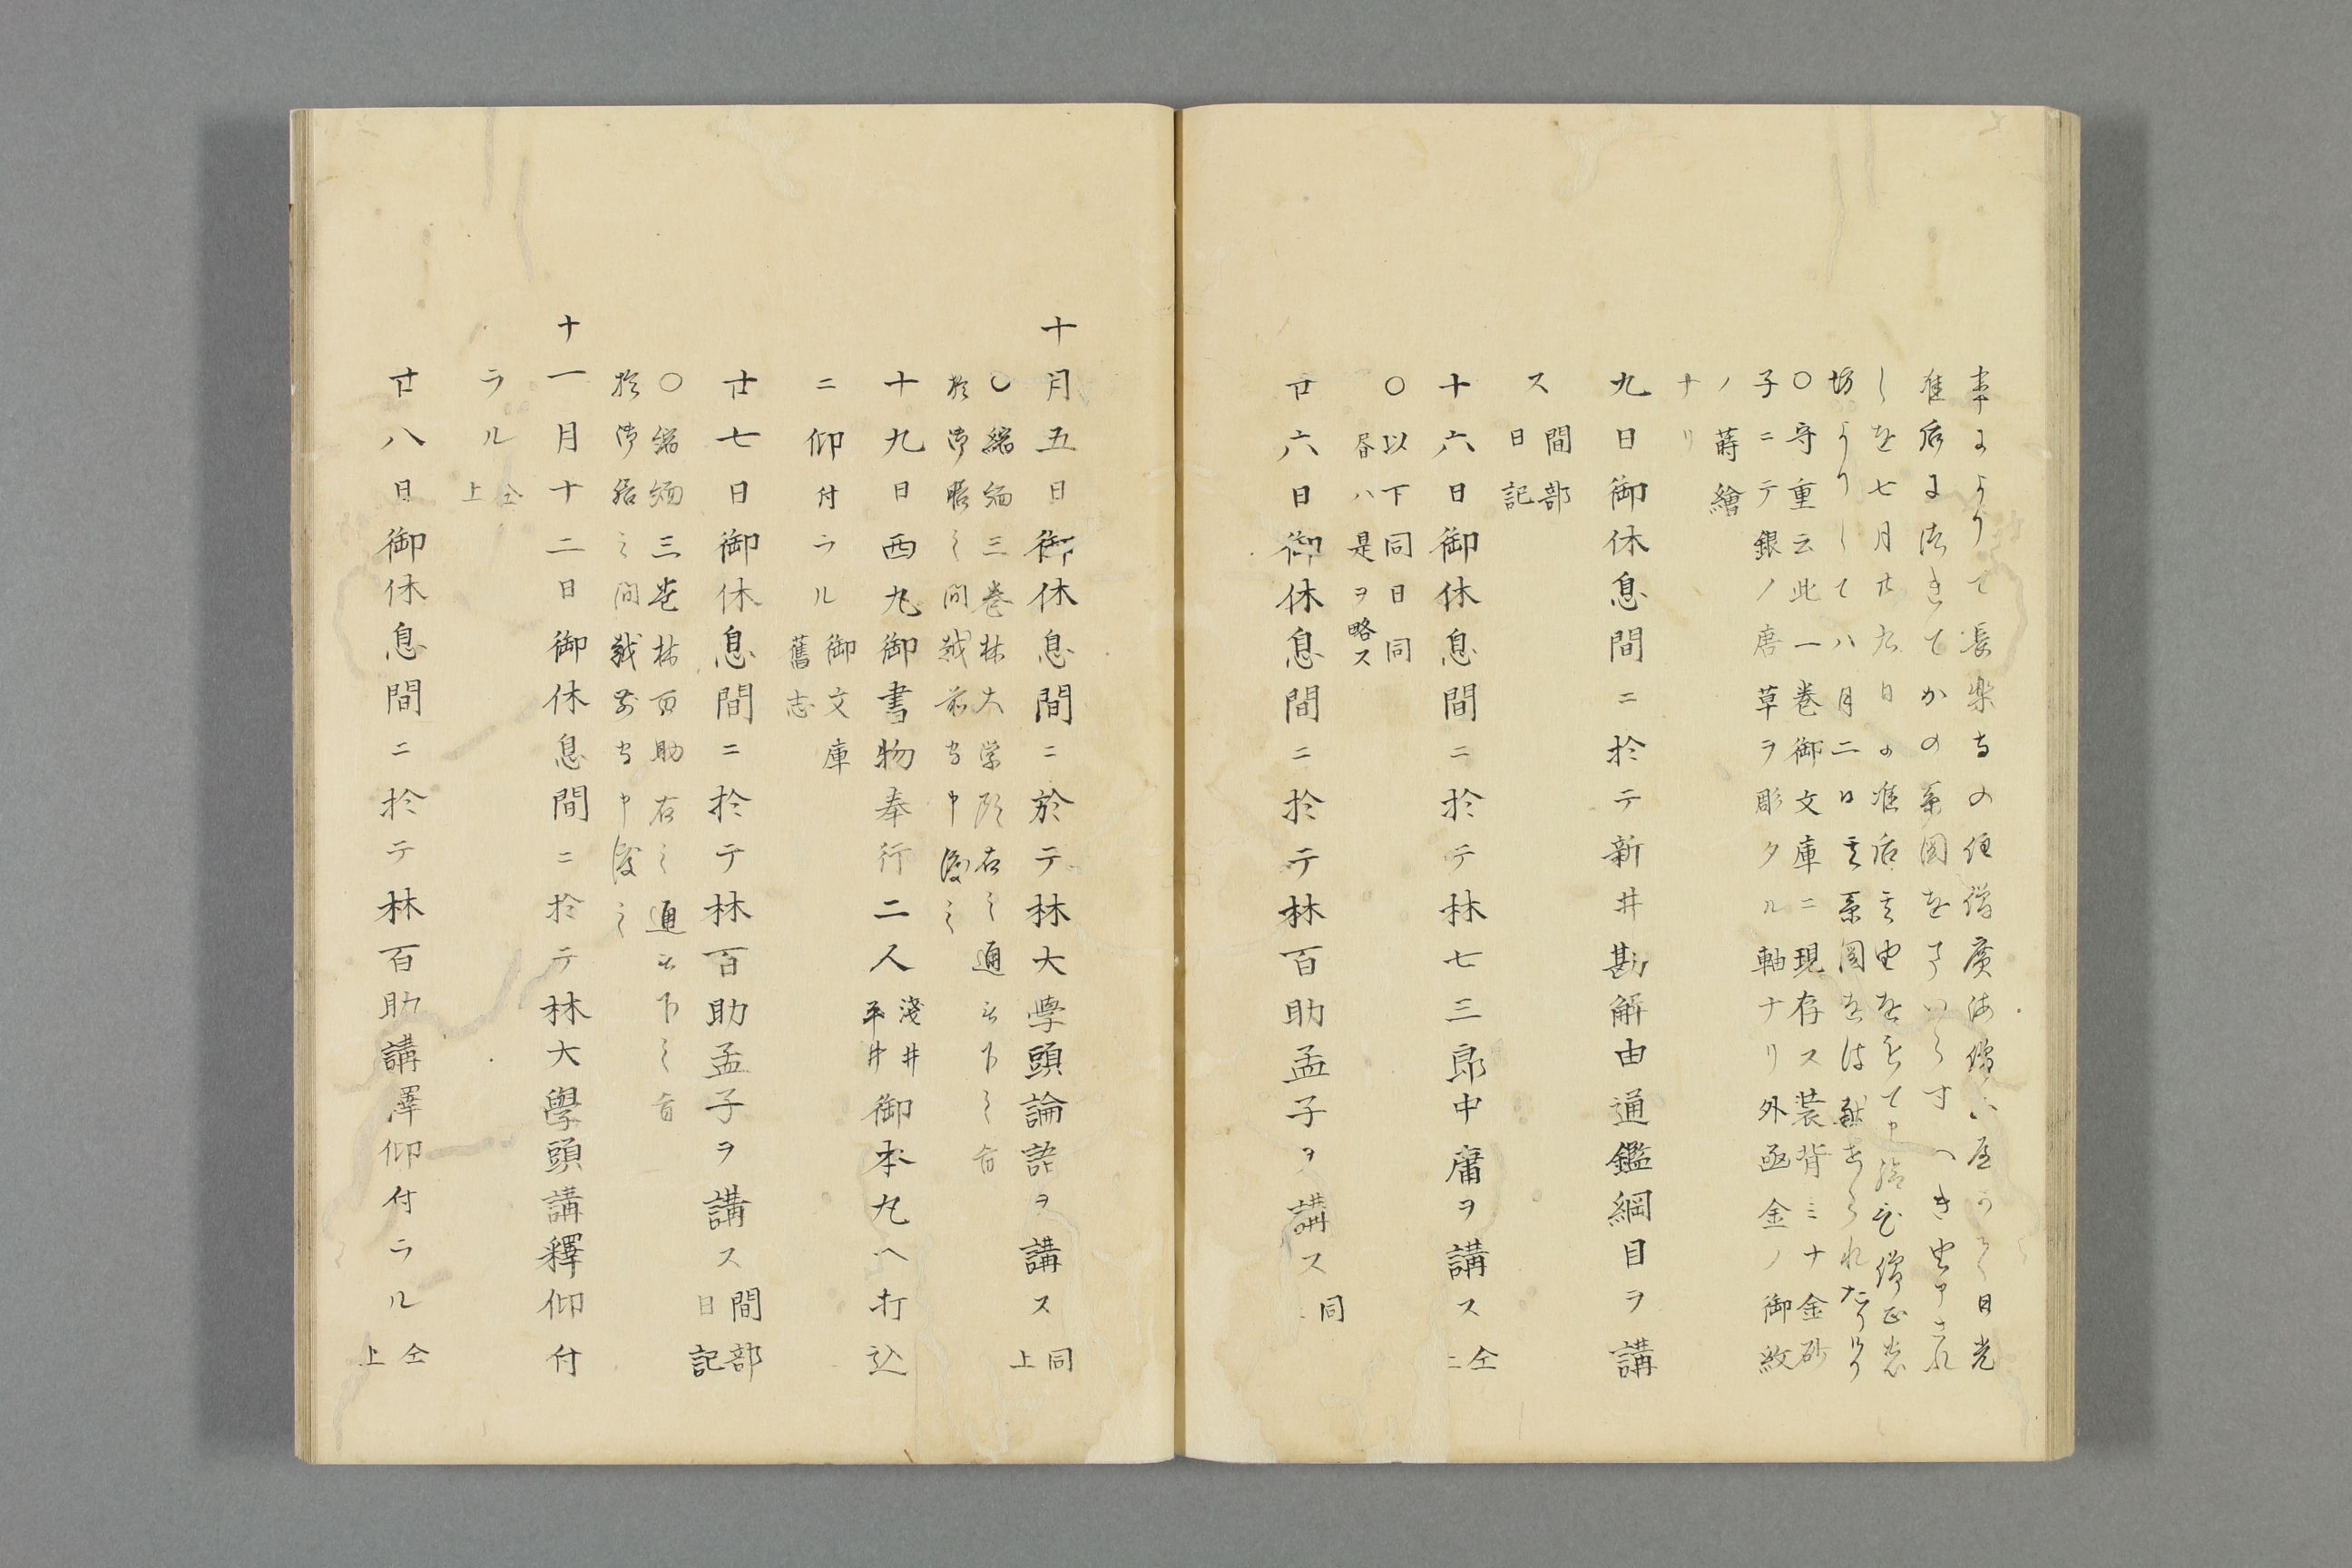 事によりて長楽寺の住僧廣海僧
准后に法きてかの系圖をまいらすへき由申され
しを七月廿九日の准后其由を
坊よりして八月二日其系圖をは献せられたりけり
〇守重云此一巻御文庫ニ現存ス装背ミナ金砂
子ニテ銀ノ唐草ヲ彫タル軸ナリ外函金ノ御紋
ノ蒔繪
ナリ
九日御休息間ニ於テ新井勘解由通鑑綱目ヲ講
ス間部
日記
十六日御休息間ニ於テ林七三郎中庸ヲ講ス仝上
〇以下同日同
昼ハ是ヲ略ス
廿六日御休息間ニ於テ林百助孟子ヲ講ス同
十月五日御休息間ニ於テ林大學頭論語ヲ講ス同上
〇縮緬三巻林大学頭右之通被下之旨
於御膳之間越前守申渡之
十九日西丸御書物奉行二人淺井平井御本丸へ打込
ニ仰付ラル御文庫
舊志
廿七日御休息間ニ於テ林百助孟子ヲ講ス間部日記
〇縮緬三巻林百助右之通被下之旨
於御膳之間越前守申渡之
十一月十二日御休息間ニ於テ林大學頭講釋仰付
ラル仝上
廿八日御休息間ニ於テ林百助講澤仰付ラル仝上